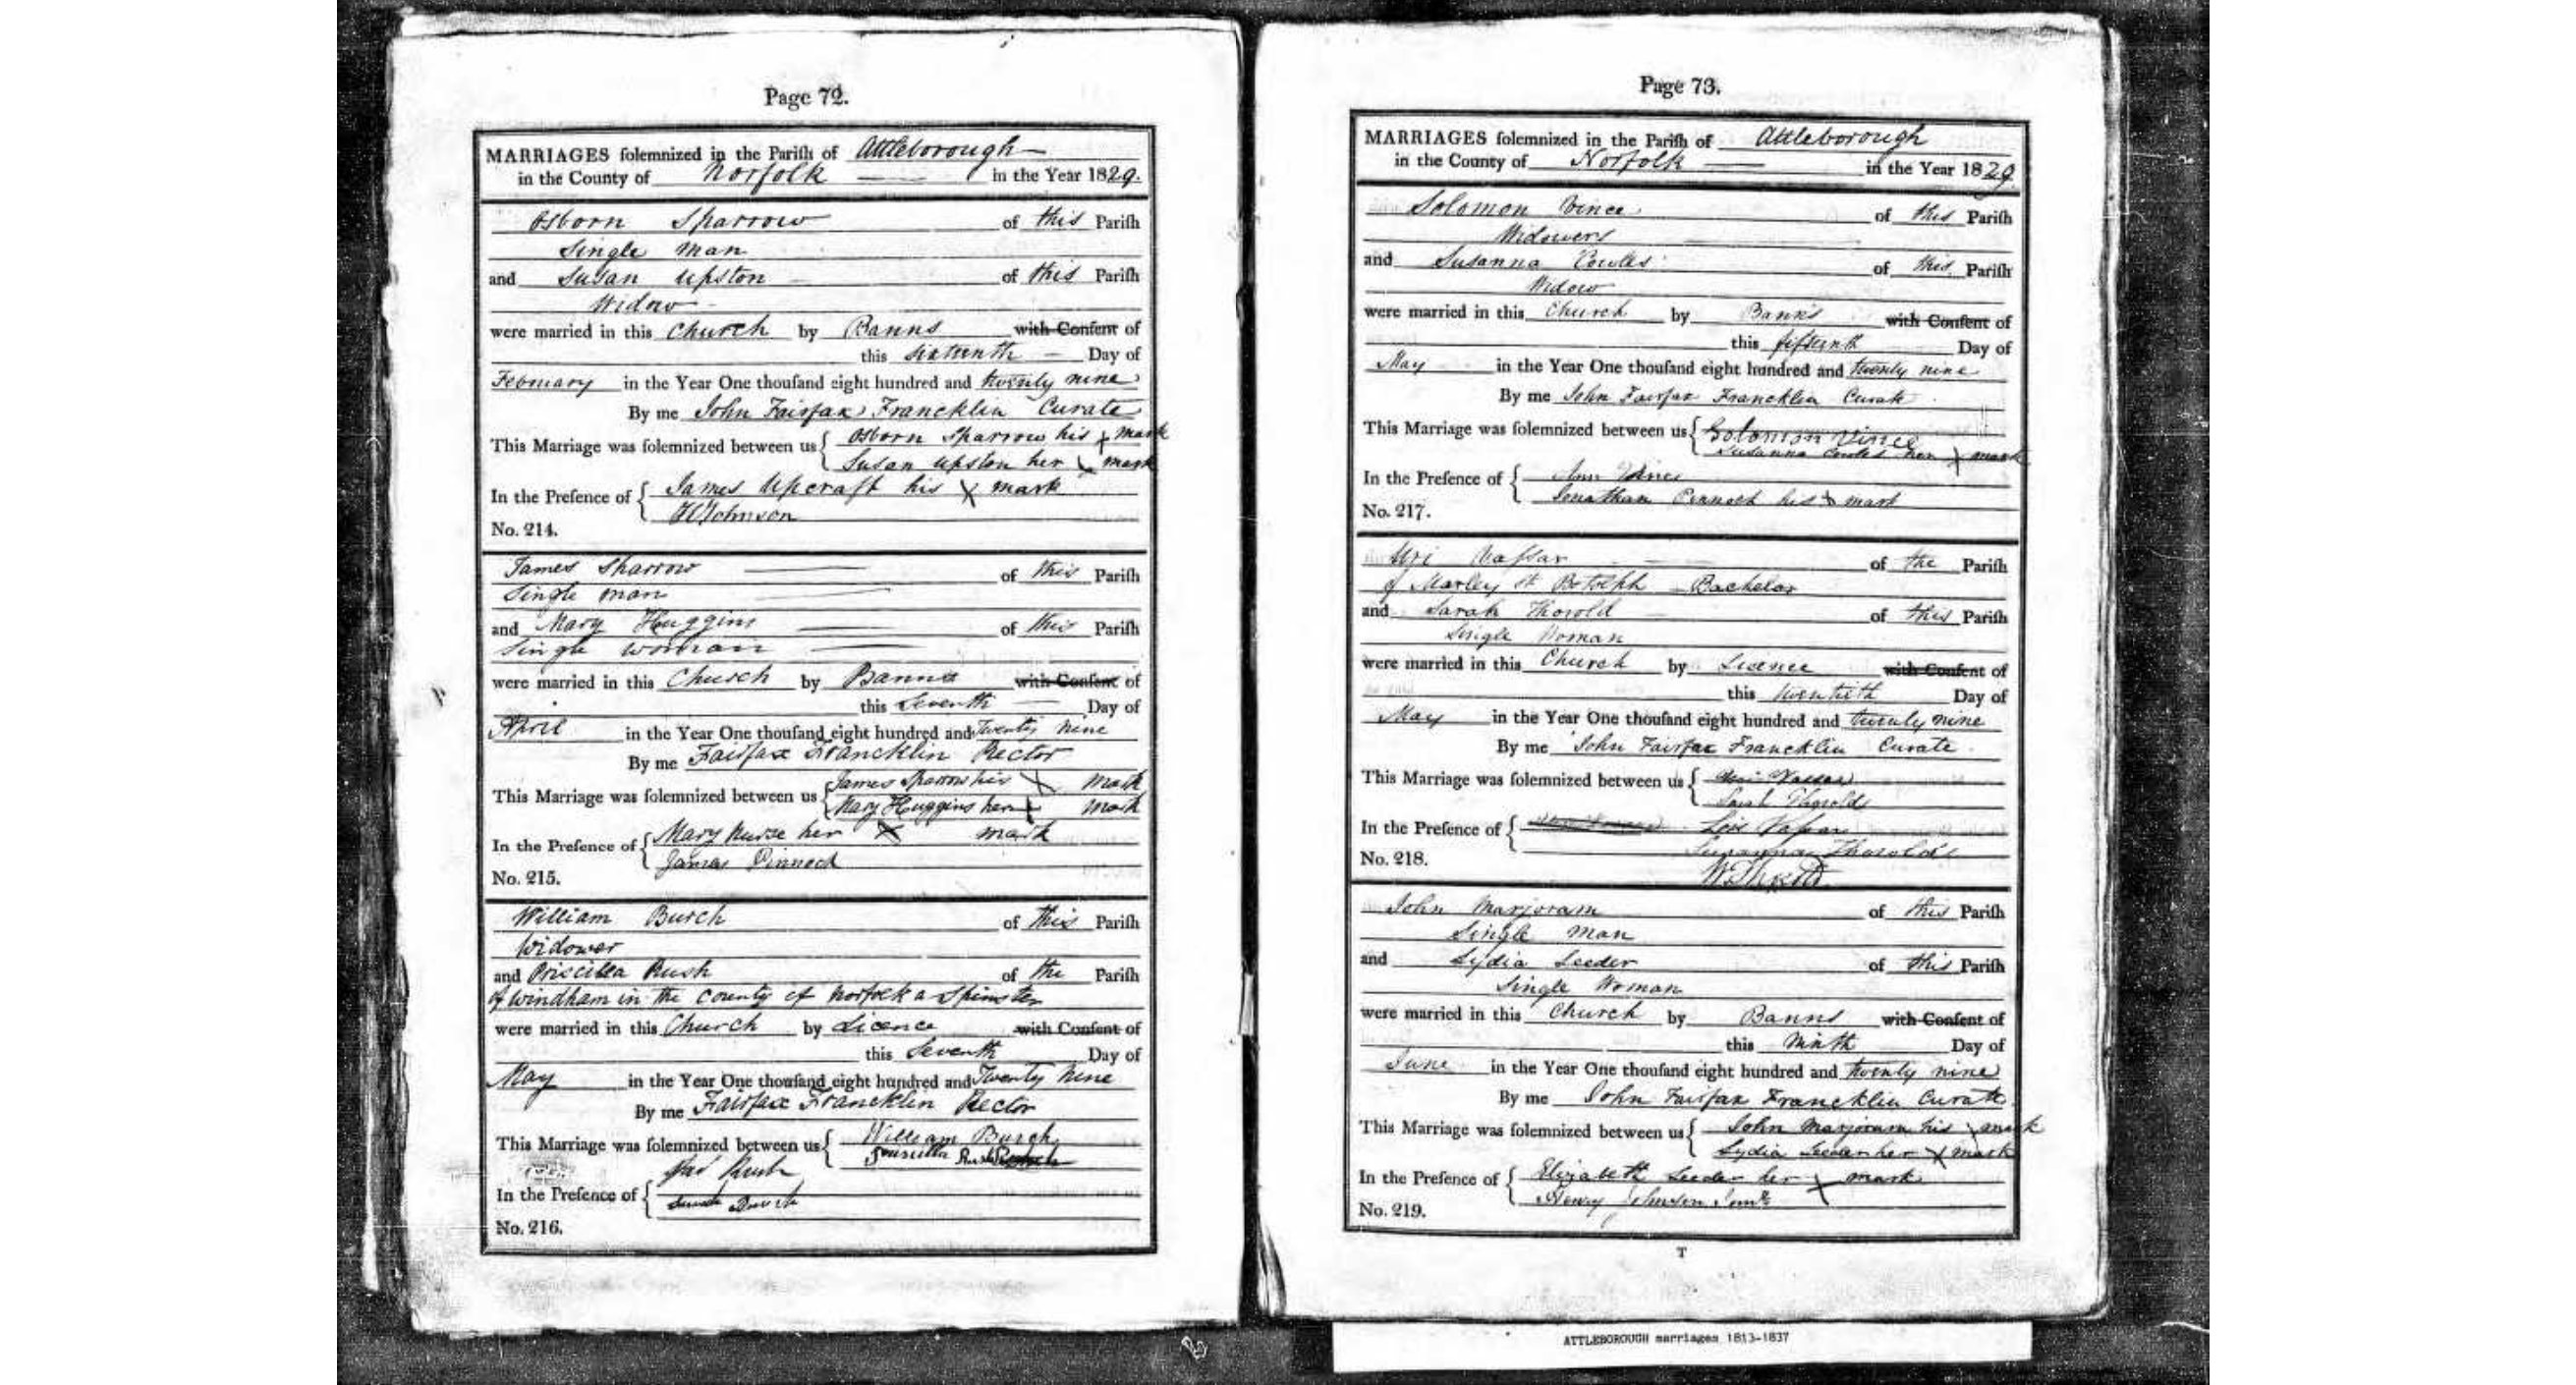 Page 72.
MARRIAGES solemnized in the Parish of Attleborough
in the County of Norfolk in the Year 1829.
Osborn Sparrow of this Parish
Single Man
and Susan Upston of this Parish
Widow
were married in this Church by Banns with Consent of
this sixteenth Day of
February in the Year One thousand eight hundred and twenty nine
By me John Fairfax Francklin Curate
This Marriage was solemnized between us { Osborn Sparrow his x mark
Susan Upston her x mark
In the Presence of { James Upcraft his X mark
H Johnson
No. 214.
James Sparrow of this Parish
Single man
and Mary Huggins of this Parish
Single woman
were married in this Church by Banns with Consent of
this Seventh Day of
April in the Year One thousand eight hundred and Twenty Nine
By me Fairfax Francklin Rector
This Marriage was solemnized between us { James Sparrow his x mark
Mary Huggins her x mark
In the Presence of { Mary Nurse her X mark
James Pinnock
No. 215.
William Burch of this Parish
Widower
and Priscilla Rush of the Parish
of Windham in the County of Norfolk a Spinster
were married in this Church by Licence with Consent of
this Seventh Day of
May in the Year One thousand eight hundred and Twenty Nine
By me Fairfax Francklin Rector
This Marriage was solemnized between us { William Burch
Priscilla Rush
Rush
In the Presence of {
No. 216.
Page 73.
MARRIAGES solemnized in the Parish of Attleborough
in the County of Norfolk in the Year 1829.
Solomon Vince of this Parish
Widower
and Susanna Cowles of this Parish
Widow
were married in this Church by Banns with Consent of
this fifteenth Day of
May in the Year One thousand eight hundred and twenty nine
By me John Fairfax Francklin Curate
This Marriage was solemnized between us { Solomon Vince
Susanna Cowles her x mark
In the Presence of { Ann Vince
Jonathan Pinnock his x mark
No. 217.
Uri Vassar of the Parish
of Morley St Botolph Bachelor
and Sarah Thorold of this Parish
Single Woman
were married in this Church by Licence with Consent of
this twentieth Day of
May in the Year One thousand eight hundred and twenty nine
By me John Fairfax Francklin Curate
This Marriage was solemnized between us { Uri Vassar
Sarah Thorold
In the Presence of { Vassar
Susanna Thorold
W Thorold
No. 218.
John Marjoram of this Parish
Single Man
and Lydia Leeder of this Parish
Single Woman
were married in this Church by Banns with Consent of
this Ninth Day of
June in the Year One thousand eight hundred and twenty nine
By me John Fairfax Francklin Curate
This Marriage was solemnized between us { John Marjoram his x mark
Lydia Leeder her X mark
In the Presence of { Elizabeth Leeder her x mark
Henry Johnson Junr
No. 219.
T
ATTLEBOROUGH marriages 1813-1837